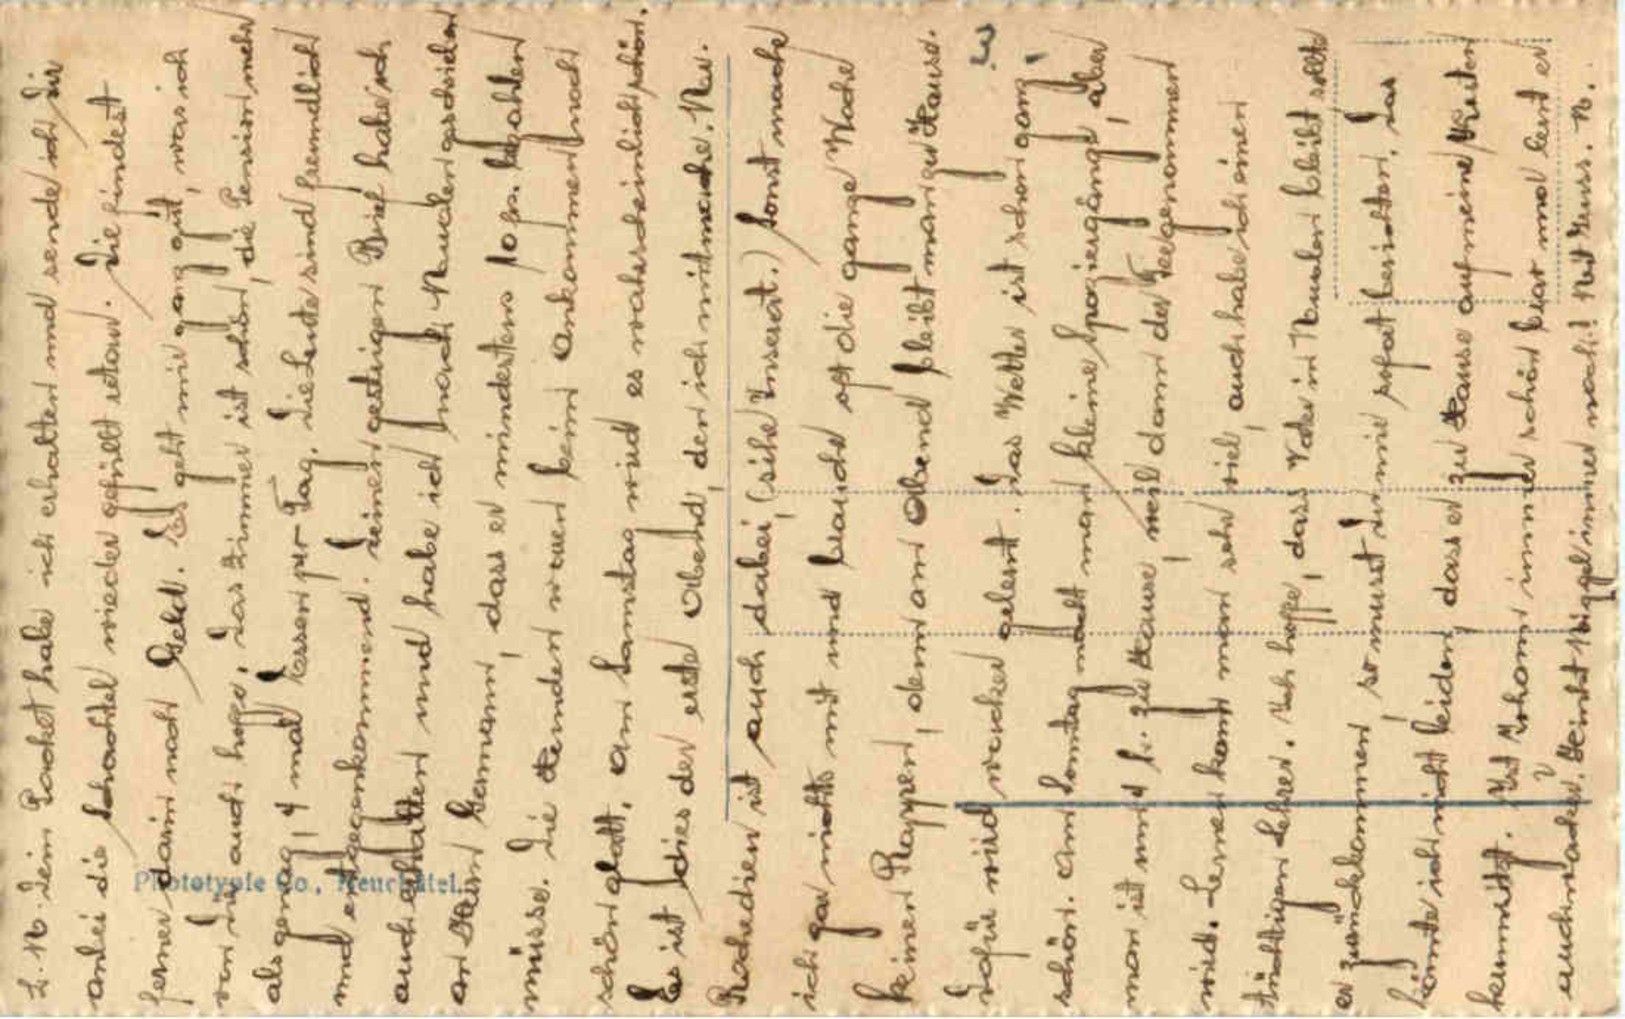 L. M. Dein Packet habe ich erhalten und sende ich Dir
anbei die Schachtel wieder gefüllt retour. Du findest
ferner darin noch Geld. Es geht mir ganz gut, was ich
von Dir auch hoffe. Das Zimmer ist schön, die Pension mehr
als genug, 4 mal Essen per Tag. Die Leute sind freundlich
und entgegenkommend. Deinen gestrigen Brief habe ich
auch erhalten und habe ich noch geschrieben
an Herrn Germann, dass er mindestens 10 frs. bezahlen
müsse. Die Hemden waren beim ankommen noch
schön glatt. Am Samstag wird es wahrscheinlich schön.
Es ist dies der erste Abend, den ich mitmache. Mw.
Rochedieu ist auch dabei, (sihe Inserat.) Sonst mache
ich gar nichts mit und brauche oft die ganze Woche
keinen Rappen, denn am Abend bleibt man zu Hause.
Dafür wird wacker gelernt. Das Wetter ist schon ganz
schön. Am Sonntag macht man kleine Spaziergänge, aber
man ist um 4 h. zu Hause, weil dann der Tee genommen
wird. Lernen kann man sehr viel, auch habe ich einen
tüchtigen Lehrer. Ich hoffe, dass Vater in bleibt sollte
er zurückkommen, so musst Du mir sofort berichten. Das
könnte ich nicht leiden, dass er zu Hause auf meine Kosten
herumsitzt. Ist Johann immer schön brav und lernt er
auch wacker? Heinst Niggel immer noch! Mit Gruss. M.
Phototypie Co., Neuchâtel.